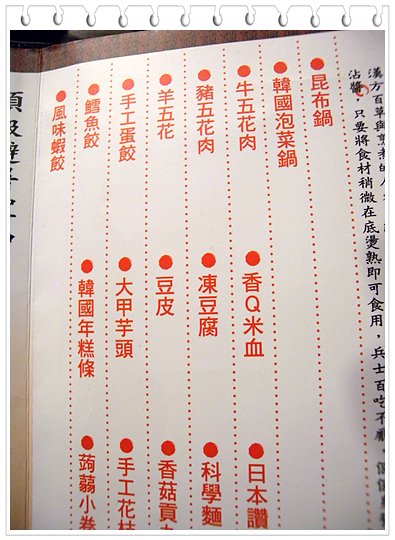 漢方百草與熬煮的
沾醬，只要將食材稍微在底燙熟即可食用，兵士百吃不膩，
昆布鍋
韓國泡菜鍋
牛五花肉
香Q米血
日本讚
豬五花肉
凍豆腐
科學麵
羊五花
豆皮
香菇貢
手工蛋餃
大甲芋頭
手工花枝
鱈魚餃
韓國年糕條
蒟蒻小卷
風味蝦餃
頂級